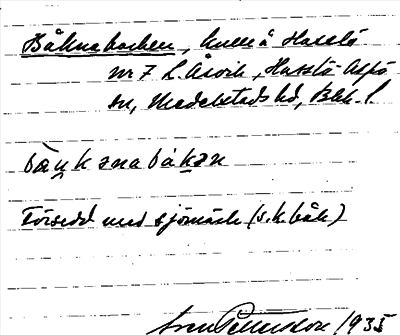 Båknabacken, kulle å Hasslö
nr 7 L. Årvik, Hasslö Aspö
sn, Medelstads hd, Blek. l.
Försedd med sjömärke (s.k. båk)
Sven Pettersson 1935